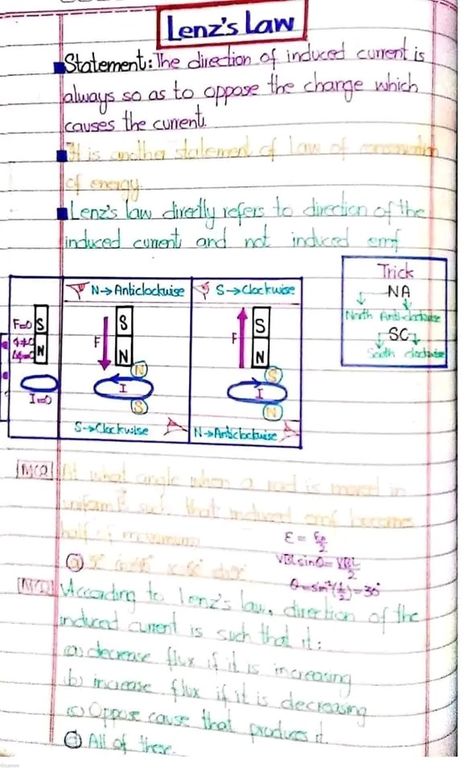 Lenz's Law
Statement: The direction of induced current is
always so as to oppose the change which
causes the current.
It is another statement of law of conservation
of energy.
Lenz's law directly refers to direction of the
induced current and not induced emf
Trick
NA
North Anti-clockwise
SC
South clockwise
N→Anticlockwise
S→Clockwise
F=0
S
N
I=0
F
S
N
N
I
S
F
S
N
S
I
N
S→Clockwise
N→Anticlockwise
MCQ At what angle when a rod is moved in
uniform B such that induced emf becomes
half of maximum
VBLsinθ = VBL/2
θ=sin⁻¹(1/2)=30°
MCQ According to Lenz's law, direction of the
induced current is such that it:
(a) decrease flux if it is increasing
(b) increase flux if it is decreasing
(c) Oppose cause that produces it.
(d) All of these.